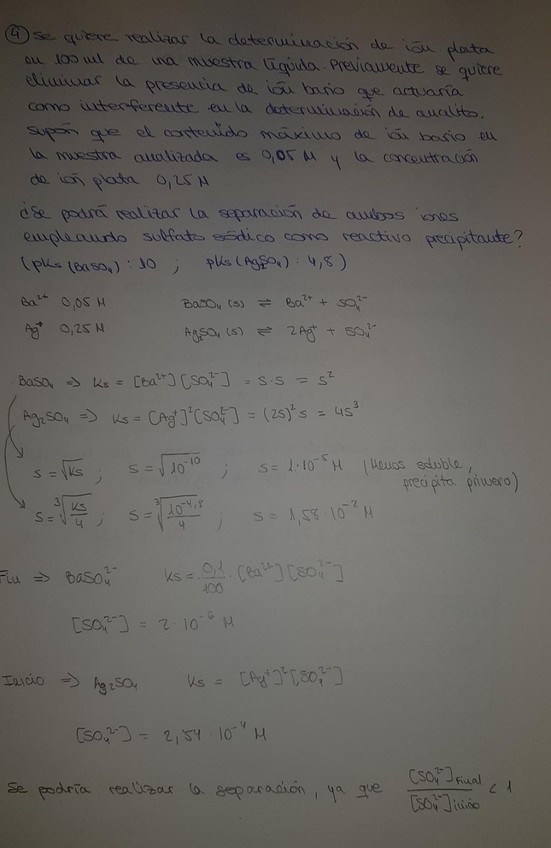 ④ Se quiere realizar la determinación de ión plata
en 100 ml de una muestra líquida. Previamente se quiere
eliminar la presencia de ión bario que actuaría
como interferente en la determinación de analito.
Supón que el contenido máximo de ión bario en
la muestra analizada es 0,05 M y la concentración
de ión plata 0,25 M
¿Se podrá realizar la separación de ambos iones
empleando sulfato sódico como reactivo precipitante?
(pKs (BaSO₄) : 10 ; pKs (Ag₂SO₄) : 4,8)
Ba²⁺ 0,05 M BaSO₄ (s) ⇌ Ba²⁺ + SO₄²⁻
Ag⁺ 0,25 M Ag₂SO₄ (s) ⇌ 2Ag⁺ + SO₄²⁻
BaSO₄ ⇒ Ks = [Ba²⁺][SO₄²⁻] = s·s = s²
Ag₂SO₄ ⇒ Ks = [Ag⁺]²[SO₄²⁻] = (2s)²s = 4s³
s = √Ks ; s = √10⁻¹⁰ ; s = 1·10⁻⁵ M (Menos soluble,
precipita primero)
s = ∛(Ks/4) ; s = ∛(10⁻⁴,⁸/4) ; s = 1,58·10⁻² M
Fin ⇒ BaSO₄²⁻ Ks = 0,1/100 · [Ba²⁺][SO₄²⁻]
[SO₄²⁻] = 2·10⁻⁶ M
Inicio ⇒ Ag₂SO₄ Ks = [Ag⁺]²[SO₄²⁻]
[SO₄²⁻] = 2,54·10⁻⁴ M
Se podría realizar la separación, ya que [SO₄²⁻]Final / [SO₄²⁻]inicio < 1